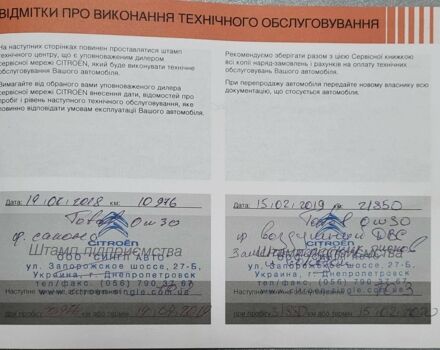 ВІДМІТКИ ПРО ВИКОНАННЯ ТЕХНІЧНОГО ОБСЛУГОВУВАННЯ
На наступних сторінках повинен проставлятися штамп
технічного центру, що є уповноваженим дилером
сервісної мережі CITROËN, який буде виконувати технічне
обслуговування Вашого автомобіля.
Вимагайте від обраного вами уповноваженого дилера
сервісної мережі CITROËN внесення дати, відомостей про
пробіг і рівень наступного технічного обслуговування, яке
повинно відповідати умовам експлуатації Вашого автомобіля.
Рекомендуємо зберігати разом з цією Сервісної книжкою
всі копії наряд-замовлень і рахунків на оплату технічних
обслуговувань Вашого автомобіля.
При перепродажу автомобіля передайте новому власнику всю
документацію, що стосується автомобіля.
Дата: 19.02.2018 км: 10 976
Total 0W30
ф. салона
CITROËN
Штамп підприємства
ООО "СИНГЛ АВТО"
ул. Запорожское шоссе, 27-Б,
Украина, г. Днепропетровск
тел/факс. (056) 790 32 67
www.citroen-single.com.ua
при пробігу 30976 км або термін 19.02.2019
Дата: 15.02.2019 км: 21850
Total 0W30
ф воздушный ДВС
CITROËN
Штамп підприємства
ул. Запорожское шоссе, 27-Б,
Украина, г. Днепропетровск
тел/факс. (056) 790
www.citroen-single.com.ua
при пробігу 31850 км або термін 15.02.2020